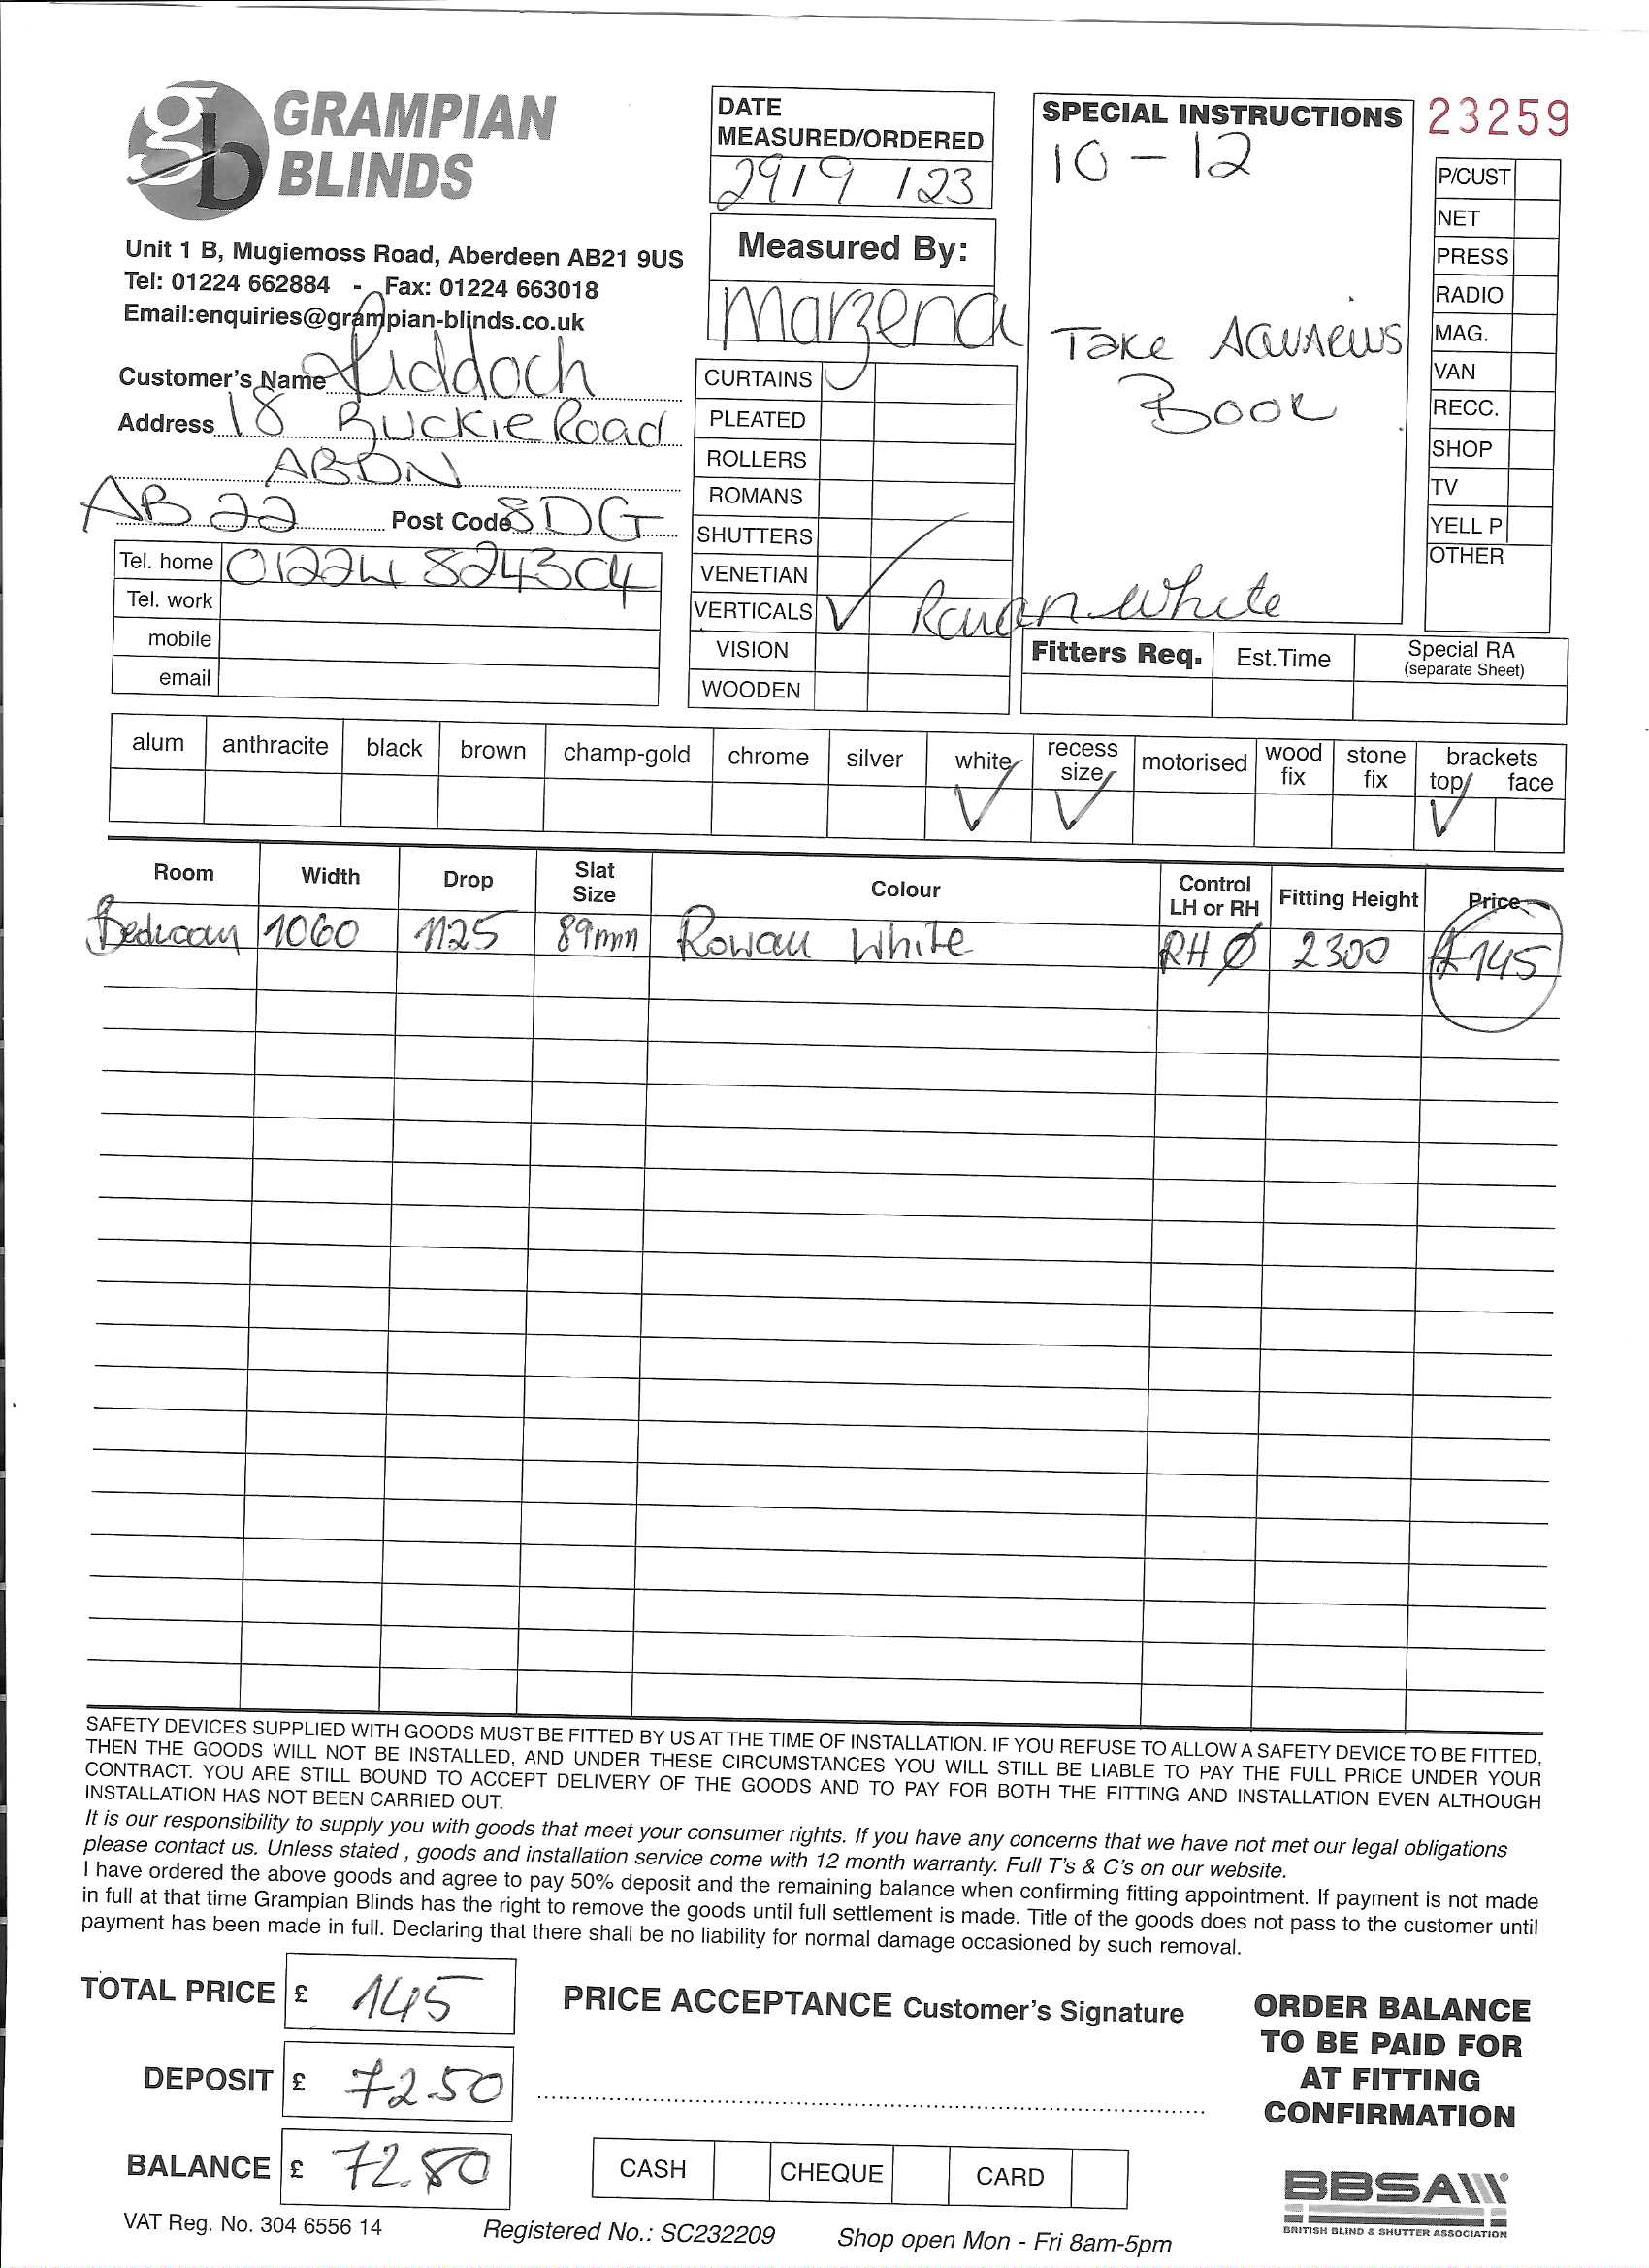 gb GRAMPIAN
BLINDS
Unit 1 B, Mugiemoss Road, Aberdeen AB21 9US
Tel: 01224 662884 - Fax: 01224 663018
Email:enquiries@grampian-blinds.co.uk
Customer's Name Riddoch
Address 18 Buckie Road
ABDN
AB22 Post Code 8DG
Tel. home 01224 824304
Tel. work
mobile
email
DATE
MEASURED/ORDERED
29/9/23
Measured By:
Marzena
CURTAINS
PLEATED
ROLLERS
ROMANS
SHUTTERS
VENETIAN
VERTICALS ✓ Rowan white
VISION
WOODEN
SPECIAL INSTRUCTIONS
10 - 12
Take Aquarius
Book
23259
P/CUST
NET
PRESS
RADIO
MAG.
VAN
RECC.
SHOP
TV
YELL P
OTHER
Fitters Req. Est.Time Special RA
(separate Sheet)
alum anthracite black brown champ-gold chrome silver white recess size motorised wood fix stone fix brackets top face
✓ ✓ ✓
Room Width Drop Slat Size Colour Control LH or RH Fitting Height Price
Bedroom 1060 1125 89mm Rowan White RH Ø 2300 £145
SAFETY DEVICES SUPPLIED WITH GOODS MUST BE FITTED BY US AT THE TIME OF INSTALLATION. IF YOU REFUSE TO ALLOW A SAFETY DEVICE TO BE FITTED,
THEN THE GOODS WILL NOT BE INSTALLED, AND UNDER THESE CIRCUMSTANCES YOU WILL STILL BE LIABLE TO PAY THE FULL PRICE UNDER YOUR
CONTRACT. YOU ARE STILL BOUND TO ACCEPT DELIVERY OF THE GOODS AND TO PAY FOR BOTH THE FITTING AND INSTALLATION EVEN ALTHOUGH
INSTALLATION HAS NOT BEEN CARRIED OUT.
It is our responsibility to supply you with goods that meet your consumer rights. If you have any concerns that we have not met our legal obligations
please contact us. Unless stated , goods and installation service come with 12 month warranty. Full T's & C's on our website.
I have ordered the above goods and agree to pay 50% deposit and the remaining balance when confirming fitting appointment. If payment is not made
in full at that time Grampian Blinds has the right to remove the goods until full settlement is made. Title of the goods does not pass to the customer until
payment has been made in full. Declaring that there shall be no liability for normal damage occasioned by such removal.
TOTAL PRICE £ 145
DEPOSIT £ 72.50
BALANCE £ 72.50
PRICE ACCEPTANCE Customer's Signature
CASH CHEQUE CARD
ORDER BALANCE
TO BE PAID FOR
AT FITTING
CONFIRMATION
BBSA
BRITISH BLIND & SHUTTER ASSOCIATION
VAT Reg. No. 304 6556 14 Registered No.: SC232209 Shop open Mon - Fri 8am-5pm